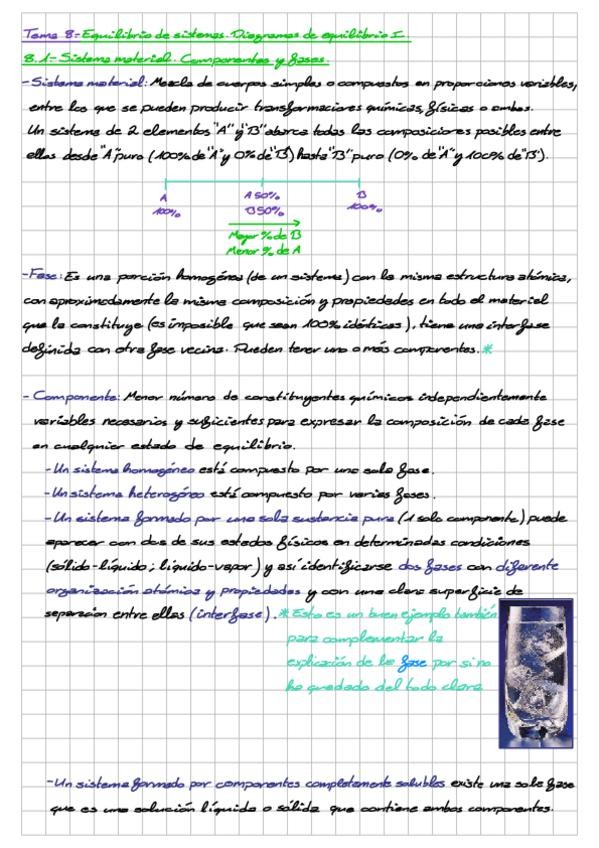 Tema 8- Equilibrio de sistemas. Diagramas de equilibrio I.
8.1- Sistema material. Componentes y fases.
- Sistema material: Mezcla de cuerpos simples o compuestos en proporciones variables,
entre los que se pueden producir transformaciones químicas, físicas o ambas.
Un sistema de 2 elementos "A" y "B" abarca todas las composiciones posibles entre
ellas desde "A" puro (100% de "A" y 0% de "B") hasta "B" puro (0% de "A" y 100% de "B").
A A 50% B
100% B 50% 100%
Mayor % de B
Menor % de A
- Fase: Es una porción homogénea (de un sistema) con la misma estructura atómica,
con aproximadamente la misma composición y propiedades en todo el material
que la constituye (es imposible que sean 100% idénticas), tiene una interfase
definida con otra fase vecina. Pueden tener uno o más componentes. *
- Componente: Menor número de constituyentes químicos independientemente
variables necesarios y suficientes para expresar la composición de cada fase
en cualquier estado de equilibrio.
- Un sistema homogéneo está compuesto por una sola fase.
- Un sistema heterogéneo está compuesto por varias fases.
- Un sistema formado por una sola sustancia pura (1 solo componente) puede
aparecer con dos de sus estados físicos en determinadas condiciones
(sólido-líquido; líquido-vapor) y así identificarse dos fases con diferente
organización atómica y propiedades y con una clara superficie de
separación entre ellas (interfase). * Esto es un buen ejemplo también
para complementar la
explicación de la fase por si no
ha quedado del todo clara
- Un sistema formado por componentes completamente solubles existe una sola fase
que es una solución líquida o sólida que contiene ambos componentes.